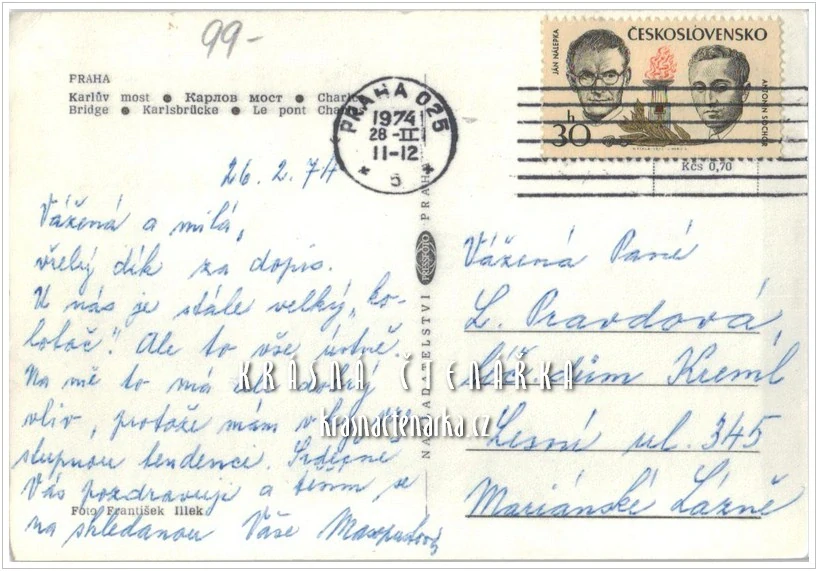 99-
PRAHA
Karlův most ● Карлов мост ● Charles
Bridge ● Karlsbrücke ● Le pont Charles
PRAHA 025
1974
28-II
11-12
5
ČESKOSLOVENSKO
JÁN NÁLEPKA
ANTONÍN SOCHOR
30 h
Kčs 0,70
26. 2. 74
Vážená a milá,
vřelý dík za dopis.
U nás je stále velký „ko-
lotoč". Ale to vše ústně.
Na mě to má ale dobrý
vliv, protože mám vze-
stupnou tendenci. Srdečně
Vás pozdravuje a těším se
na shledanou Vaše
Foto František Illek
NAKLADATELSTVÍ PRESSFOTO PRAHA
Vážená Paní
L. Pravdová,
Léč. dům Kreml
Lesní ul. 345
Mariánské Lázně
KRÁSNÁ ČTENÁŘKA
krasnactenarka.cz